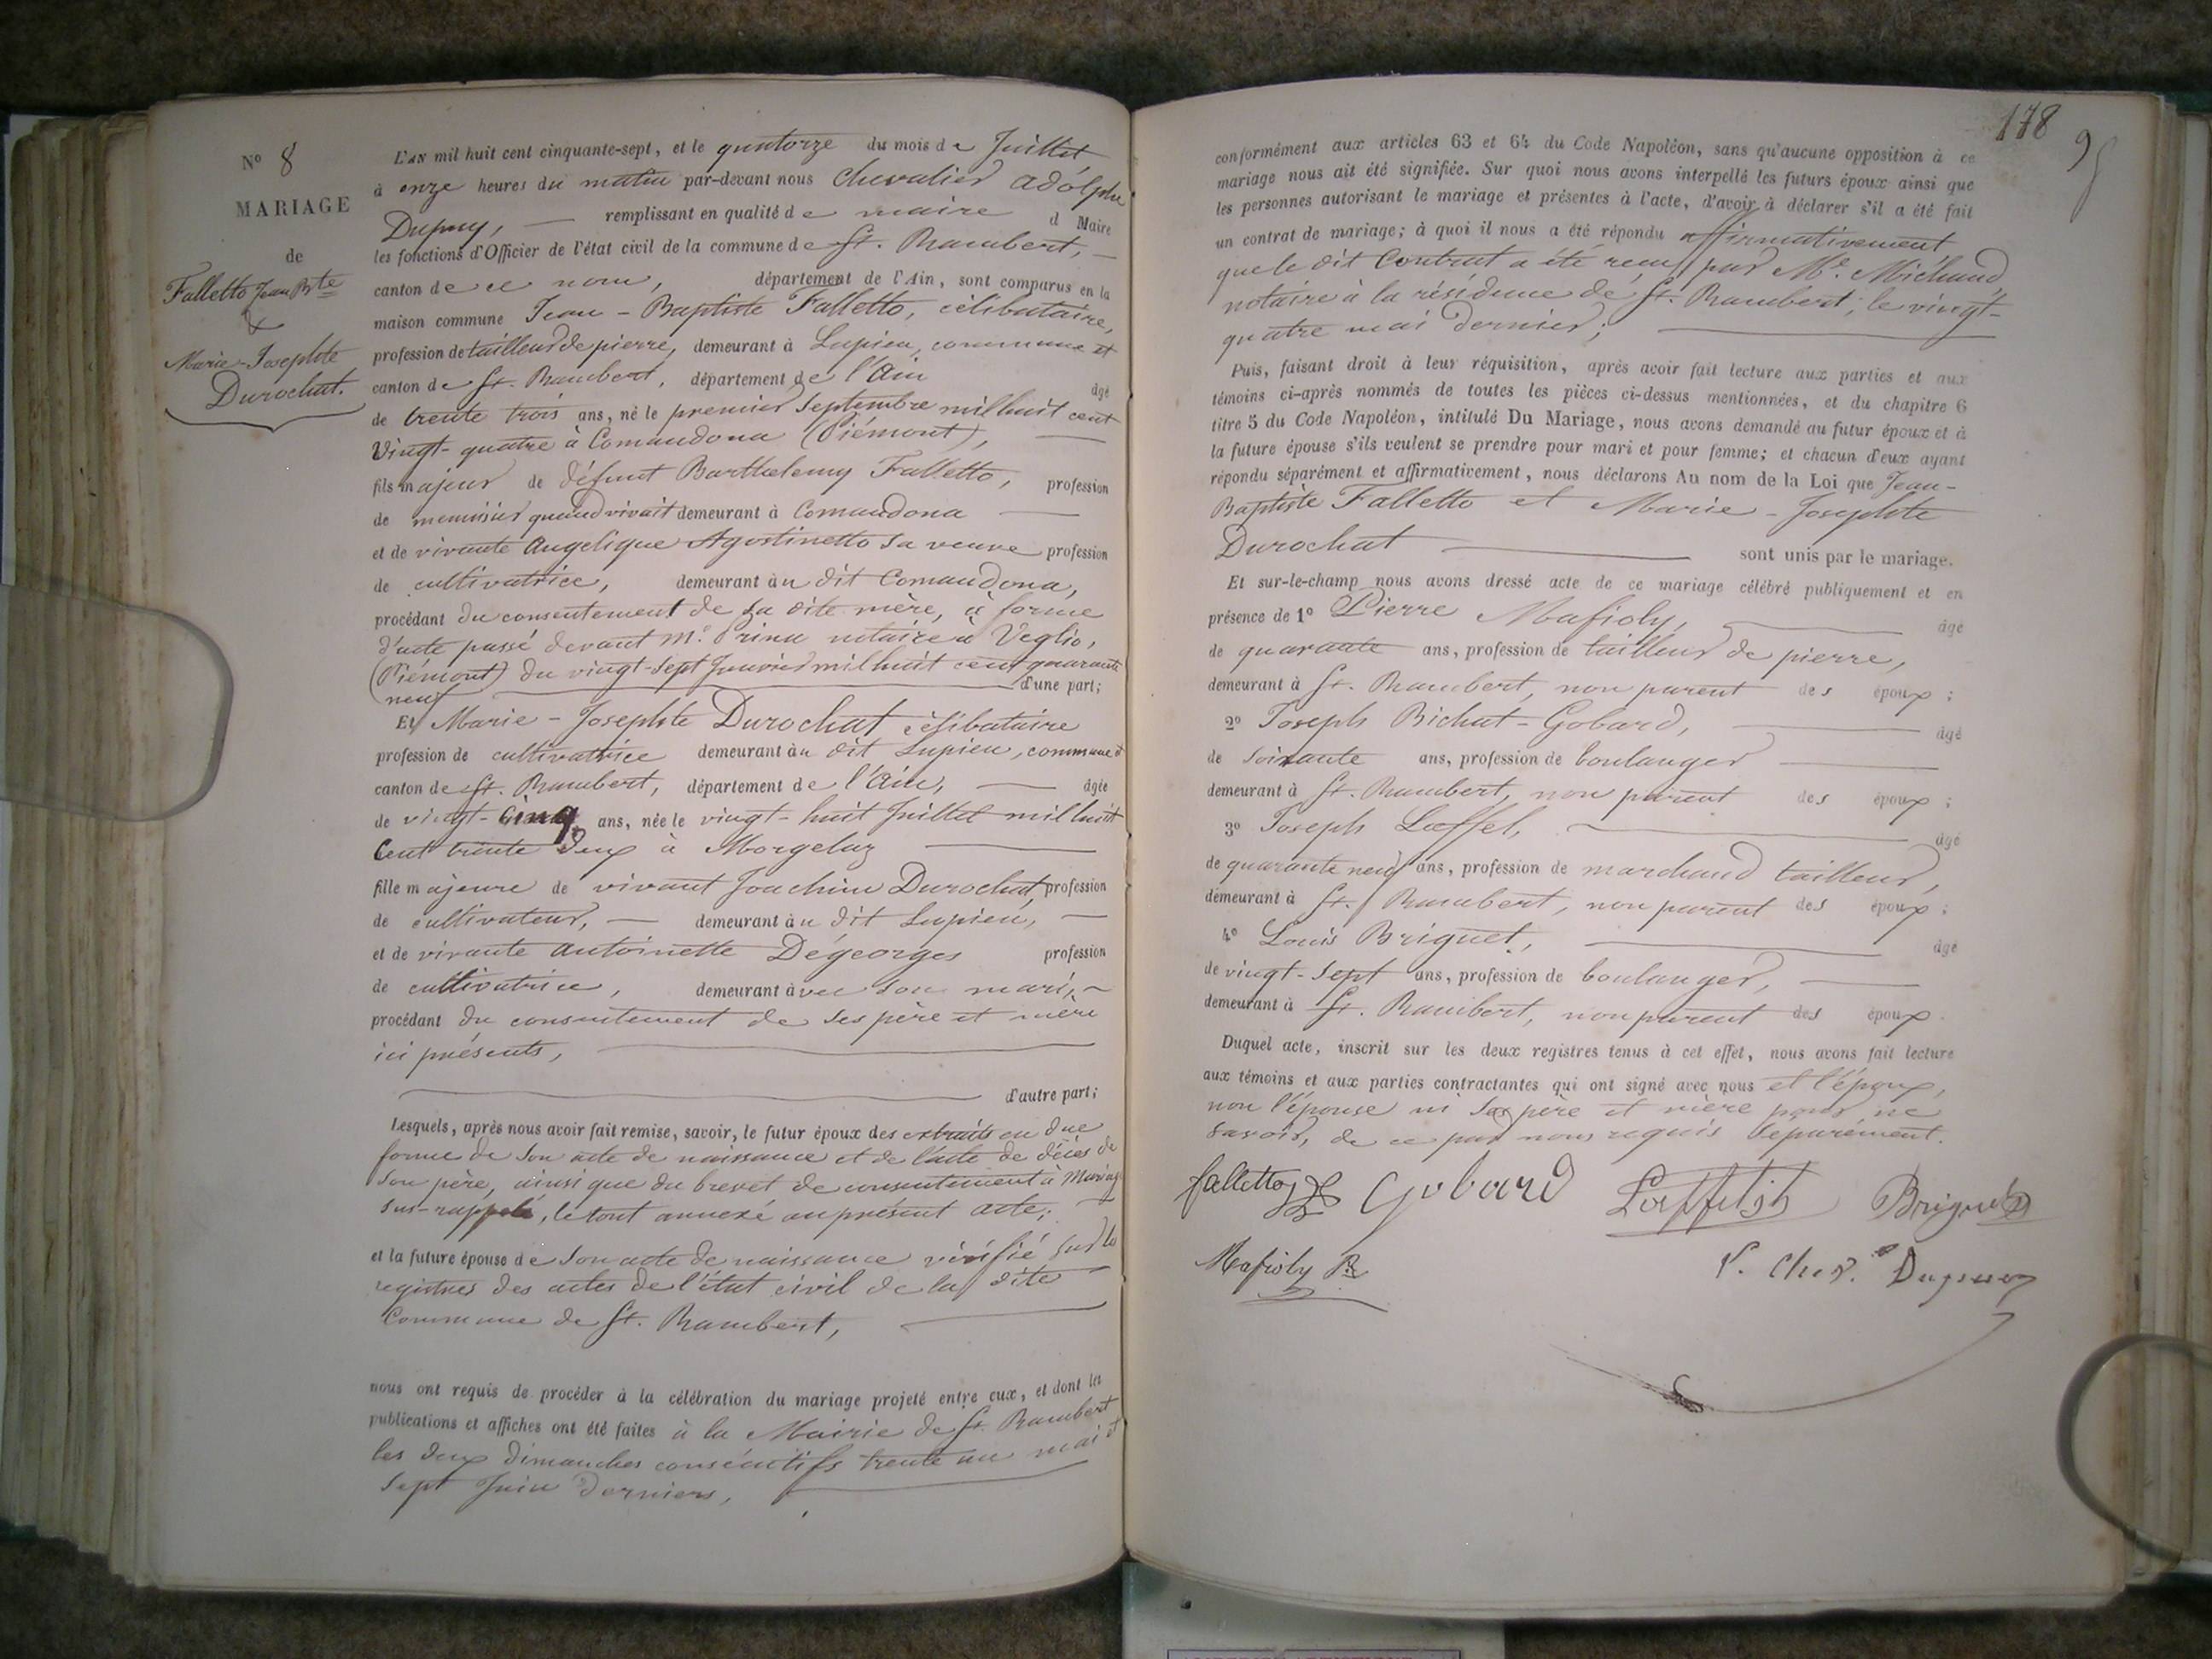 N° 8
MARIAGE
de
Falletto Jean Bte
&
Marie-Josephte
Durochat.
L'AN mil huit cent cinquante-sept, et le quatorze du mois de Juillet
à onze heures du matin par-devant nous Chevalier Adolphe
Dupuy, remplissant en qualité de maire d Maire
les fonctions d'Officier de l'état civil de la commune de St. Rambert,
canton de ce nom, département de l'Ain, sont comparus en la
maison commune Jean-Baptiste Falletto, célibataire,
profession de tailleur de pierre, demeurant à Lupieu, commune et
canton de St. Rambert, département de l'Ain âgé
de trente trois ans, né le premier Septembre mil huit cent
Vingt-quatre à Comandona (Piémont),
fils majeur de défunt Barthelemy Falletto, profession
de menuisier quand vivait demeurant à Comandona
et de vivante Angelique Agostinetto sa veuve profession
de cultivatrice, demeurant àu dit Comandona,
procédant du consentement de sa dite mère, à forme
d'acte passé devant Me. Prina notaire à Veglio,
(Piémont) du vingt-sept Janvier mil huit cent quarante
neuf d'une part;
Et Marie-Josephte Durochat célibataire
profession de cultivatrice demeurant àu dit Lupieu, commune et
canton de St. Rambert, département de l'Ain, âgée
de vingt-cinq ans, née le vingt-huit Juillet mil huit
Cent trente deux à Morgelaz
fille majeure de vivant Joachim Durochat, profession
de cultivateur, demeurant àu dit Lupieu,
et de vivante Antoinette Dégeorges profession
de cultivatrice, demeurant àvec son mari,
procédant du consentement de ses père et mère
ici présents,
d'autre part;
Lesquels, après nous avoir fait remise, savoir, le futur époux des extraits en due
forme de son acte de naissance et de l'acte de décès de
son père, ainsi que du brevet de consentement à Mariage
sus-rappelé, le tout annexé au présent acte;
et la future épouse de son acte de naissance vérifié sur les
registres des actes de l'état civil de la dite
Commune de St. Rambert,
nous ont requis de procéder à la célébration du mariage projeté entre eux, et dont les
publications et affiches ont été faites à la Mairie de St. Rambert
les deux dimanches consécutifs trente un mai et
sept Juin derniers,
178
conformément aux articles 63 et 64 du Code Napoléon, sans qu'aucune opposition à ce
mariage nous ait été signifiée. Sur quoi nous avons interpellé les futurs époux ainsi que
les personnes autorisant le mariage et présentes à l'acte, d'avoir à déclarer s'il a été fait
un contrat de mariage; à quoi il nous a été répondu affirmativement
que le dit Contrat a été reçu par Me. Michaud,
notaire à la résidence de St. Rambert, le vingt-
quatre mai dernier;
Puis, faisant droit à leur réquisition, après avoir fait lecture aux parties et aux
témoins ci-après nommés de toutes les pièces ci-dessus mentionnées, et du chapitre 6
titre 5 du Code Napoléon, intitulé Du Mariage, nous avons demandé au futur époux et à
la future épouse s'ils veulent se prendre pour mari et pour femme; et chacun d'eux ayant
répondu séparément et affirmativement, nous déclarons Au nom de la Loi que Jean-
Baptiste Falletto et Marie-Josephte
Durochat sont unis par le mariage.
Et sur-le-champ nous avons dressé acte de ce mariage célébré publiquement et en
présence de 1° Pierre Mafioly, âgé
de quarante ans, profession de tailleur de pierre,
demeurant à St. Rambert, non parent des époux;
2° Joseph Bichat-Gobard, âgé
de soixante ans, profession de boulanger
demeurant à St. Rambert, non parent des époux;
3° Joseph Lœffel, âgé
de quarante neuf ans, profession de marchand tailleur,
demeurant à St. Rambert, non parent des époux;
4° Louis Briguet, âgé
de vingt-sept ans, profession de boulanger,
demeurant à St. Rambert, non parent des époux.
Duquel acte, inscrit sur les deux registres tenus à cet effet, nous avons fait lecture
aux témoins et aux parties contractantes qui ont signé avec nous et l'époux,
non l'épouse ni ses père et mère pour ne
savoir, de ce par nous requis séparément.
falletto Gobard Loeffel Briguet
Mafioly P. Cher. Dupuy